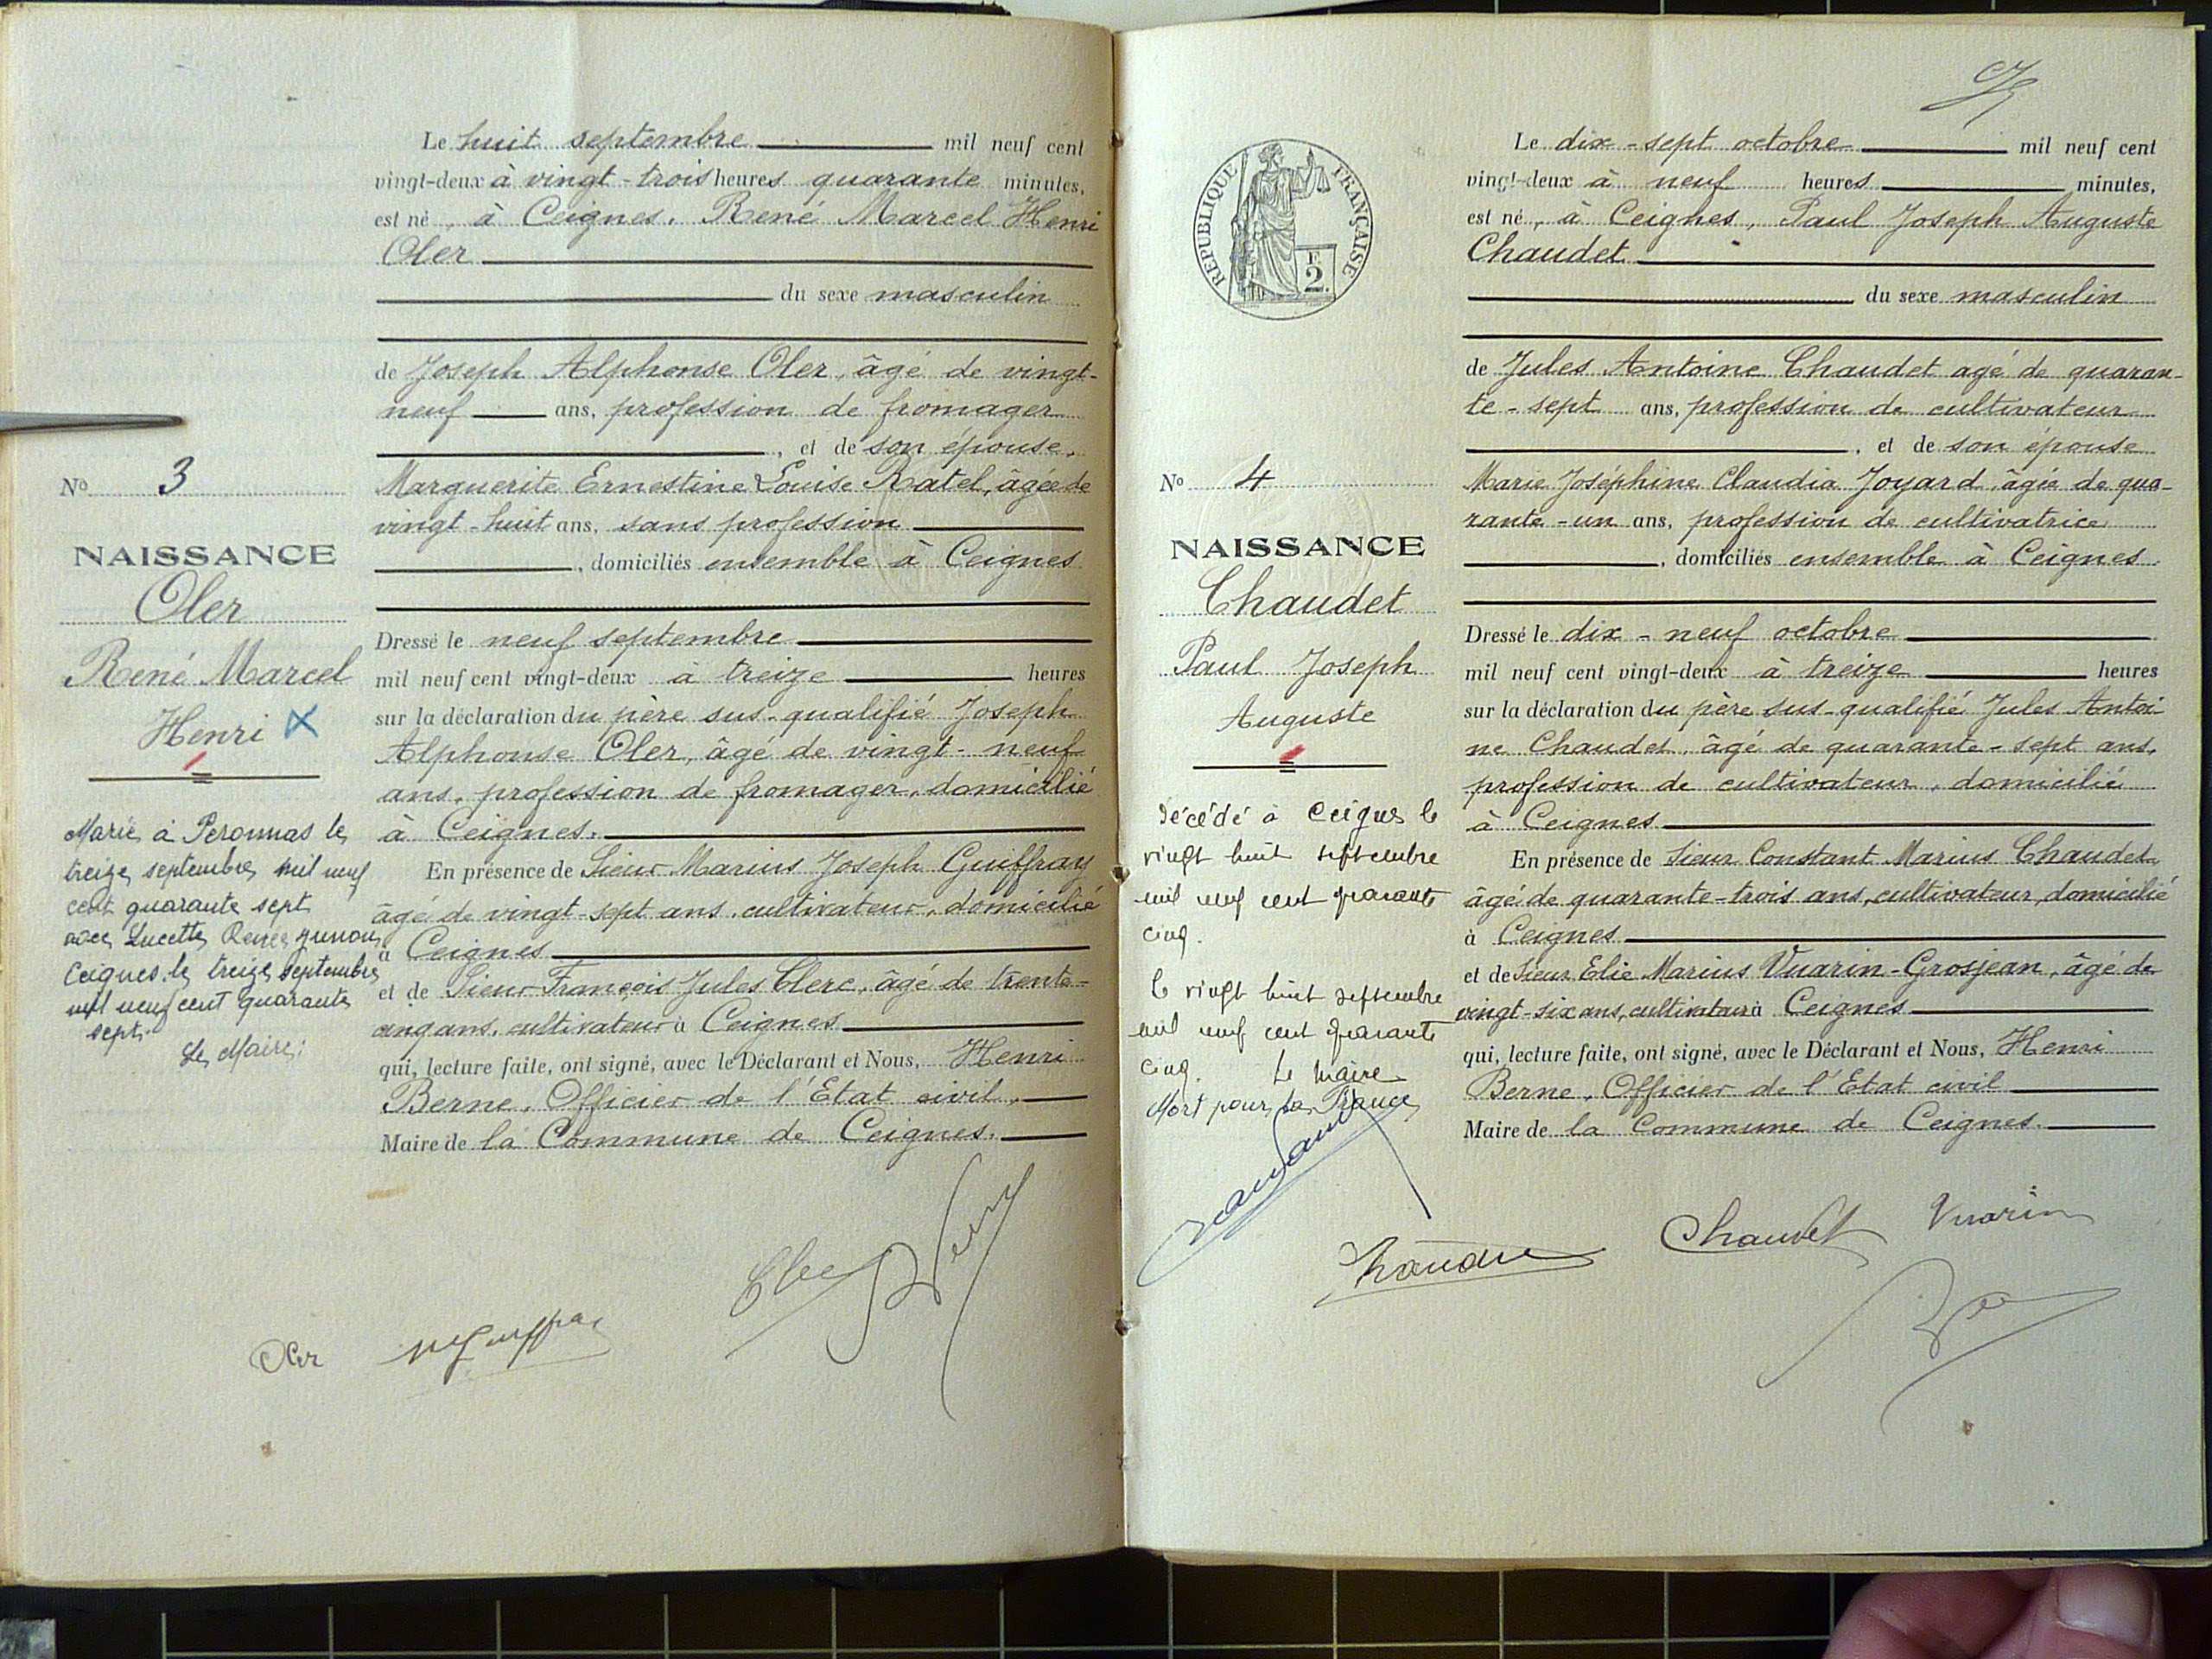 Le huit septembre mil neuf cent
vingt-deux à vingt-trois heures quarante minutes,
est né, à Ceignes, René Marcel Henri
Oler
du sexe masculin
de Joseph Alphonse Oler, âgé de vingt-
neuf ans, profession de fromager
, et de son épouse,
Marguerite Ernestine Louise Ratel, âgée de
vingt-huit ans, sans profession
, domiciliés ensemble à Ceignes
Dressé le neuf septembre
mil neuf cent vingt-deux à treize heures
sur la déclaration du père sus-qualifié Joseph
Alphonse Oler, âgé de vingt-neuf
ans, profession de fromager, domicilié
à Ceignes.
En présence de Sieur Marius Joseph Guiffray
âgé de vingt-sept ans, cultivateur, domicilié
à Ceignes
et de Sieur François Jules Clerc, âgé de trente-
cinq ans, cultivateur à Ceignes
qui, lecture faite, ont signé, avec le Déclarant et Nous, Henri
Berne, Officier de l'Etat civil,
Maire de la Commune de Ceignes.
No 3
NAISSANCE
Oler
René Marcel
Henri
Marié à Peronnas le
treize septembre mil neuf
cent quarante sept
avec Lucette Renée
Ceignes, le treize septembre
mil neuf cent quarante
sept.
Le Maire:
Oler
Clerc
Berne
Le dix-sept octobre mil neuf cent
vingt-deux à neuf heures minutes,
est né, à Ceignes, Paul Joseph Auguste
Chaudet
du sexe masculin
de Jules Antoine Chaudet agé de quaran-
te-sept ans, profession de cultivateur
, et de son épouse
Marie Joséphine Claudia Joyard, âgée de qua-
rante-un ans, profession de cultivatrice
, domiciliés ensemble à Ceignes
Dressé le dix-neuf octobre
mil neuf cent vingt-deux à treize heures
sur la déclaration du père sus-qualifié Jules Antoi
ne Chaudet, âgé de quarante-sept ans,
profession de cultivateur, domicilié
à Ceignes
En présence de Sieur Constant Marius Chaudet
âgé de quarante-trois ans, cultivateur, domicilié
à Ceignes
et de Sieur Elie Marius Vuarin-Grosjean, âgé de
vingt-six ans, cultivateur à Ceignes
qui, lecture faite, ont signé, avec le Déclarant et Nous, Henri
Berne, Officier de l'Etat civil
Maire de la Commune de Ceignes.
REPUBLIQUE FRANÇAISE
F
2.
No 4
NAISSANCE
Chaudet
Paul Joseph
Auguste
Décédé à Ceignes le
vingt huit septembre
mil neuf cent quarante
cinq.
le vingt huit septembre
mil neuf cent quarante
cinq. Le maire
Mort pour la France
Chaudet
Vuarin